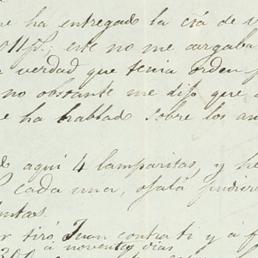 e ha entregado la crá de v
este no me cargaba
verdad que tenia orden p
no obstante me dijo que
e ha hablado sobre los an
aquí 4 lamparitas, y he
cada una, ojalá pudiera
juntas.
r tiró Juan contra ti y á f
á noventa días